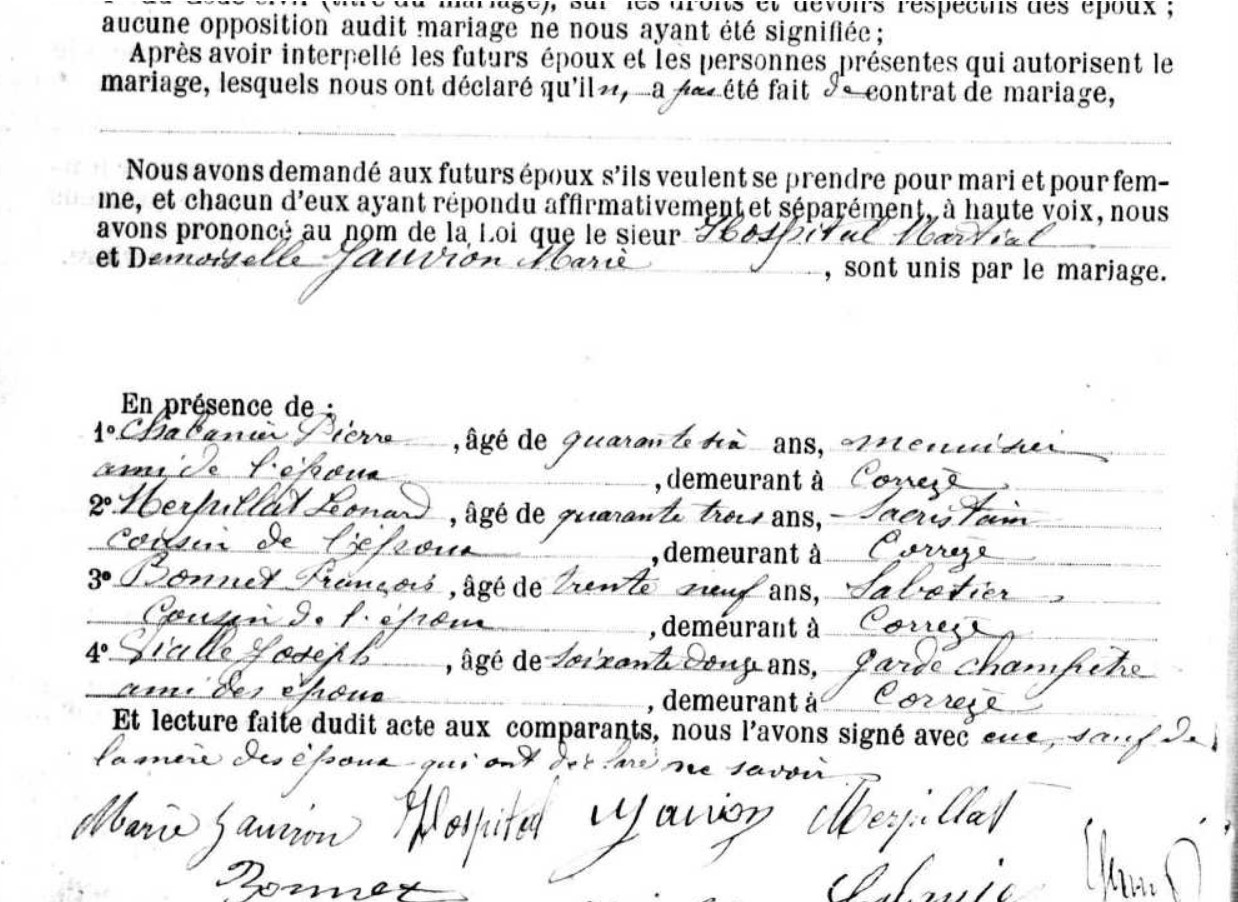 du mariage), sur les droits et devoirs respectifs des époux ;
aucune opposition audit mariage ne nous ayant été signifiée ;
Après avoir interpellé les futurs époux et les personnes présentes qui autorisent le
mariage, lesquels nous ont déclaré qu'il n, a pas été fait de contrat de mariage,
Nous avons demandé aux futurs époux s'ils veulent se prendre pour mari et pour fem-
me, et chacun d'eux ayant répondu affirmativement et séparément, à haute voix, nous
avons prononcé au nom de la Loi que le sieur Hospital Martial
et Demoiselle Jauvion Marie , sont unis par le mariage.
En présence de :
1° Chabanier Pierre , âgé de quarante six ans, menuisier
ami de l'époux , demeurant à Corrèze
2° Merpillat Leonard , âgé de quarante trois ans, Sacristain
cousin de l'époux , demeurant à Corrèze
3° Bonnet François , âgé de trente neuf ans, Sabotier
Cousin de l'époux , demeurant à Corrèze
4° Vialle Joseph , âgé de soixante douze ans, garde champêtre
ami des époux , demeurant à Corrèze
Et lecture faite dudit acte aux comparants, nous l'avons signé avec eux, sauf de
la mère des époux qui ont déclaré ne savoir
Marie Jauvion Hospital Jauvion Merpillat
Bonnet